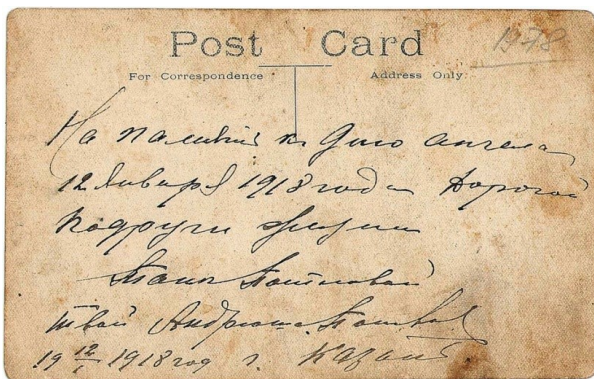 Post Card
For Correspondence Address Only
На память ко Дню ангела
12 Января 1918 года Дорогой
подруги жизни
Тани
твой Андрюша
19 12/1 1918 год г. Казань